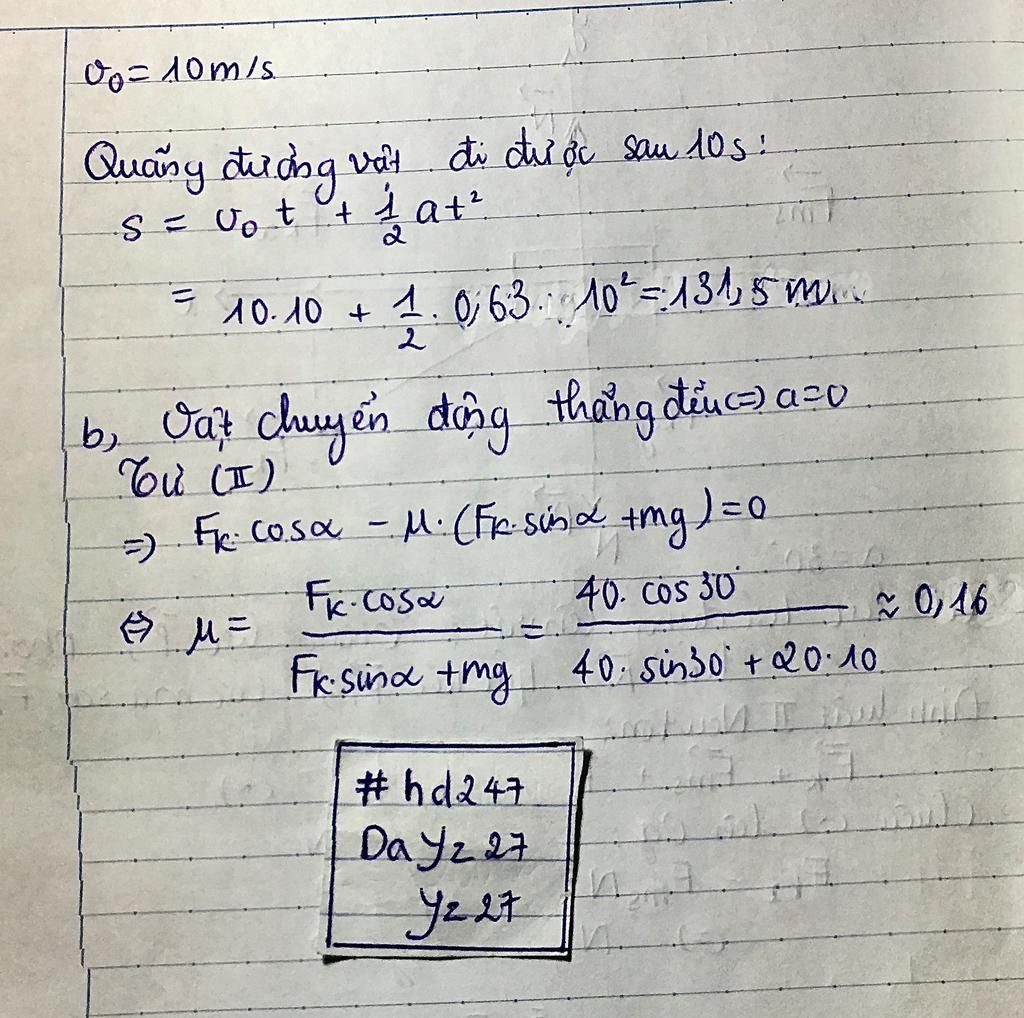 v₀ = 10m/s
Quãng đường vật đi được sau 10s:
s = v₀ t + 1/2 at²
= 10.10 + 1/2 . 0,63 . 10² = 131,5 m
b, Vật chuyển động thẳng đều => a=0
Từ (II)
=> Fk.cosα - μ.(Fk.sinα +mg)=0
⇔ μ = Fk.cosα / Fk.sinα +mg = 40. cos30° / 40. sin30° + 20.10 ≈ 0,16
# hd247
Da Yz 27
Yz 27